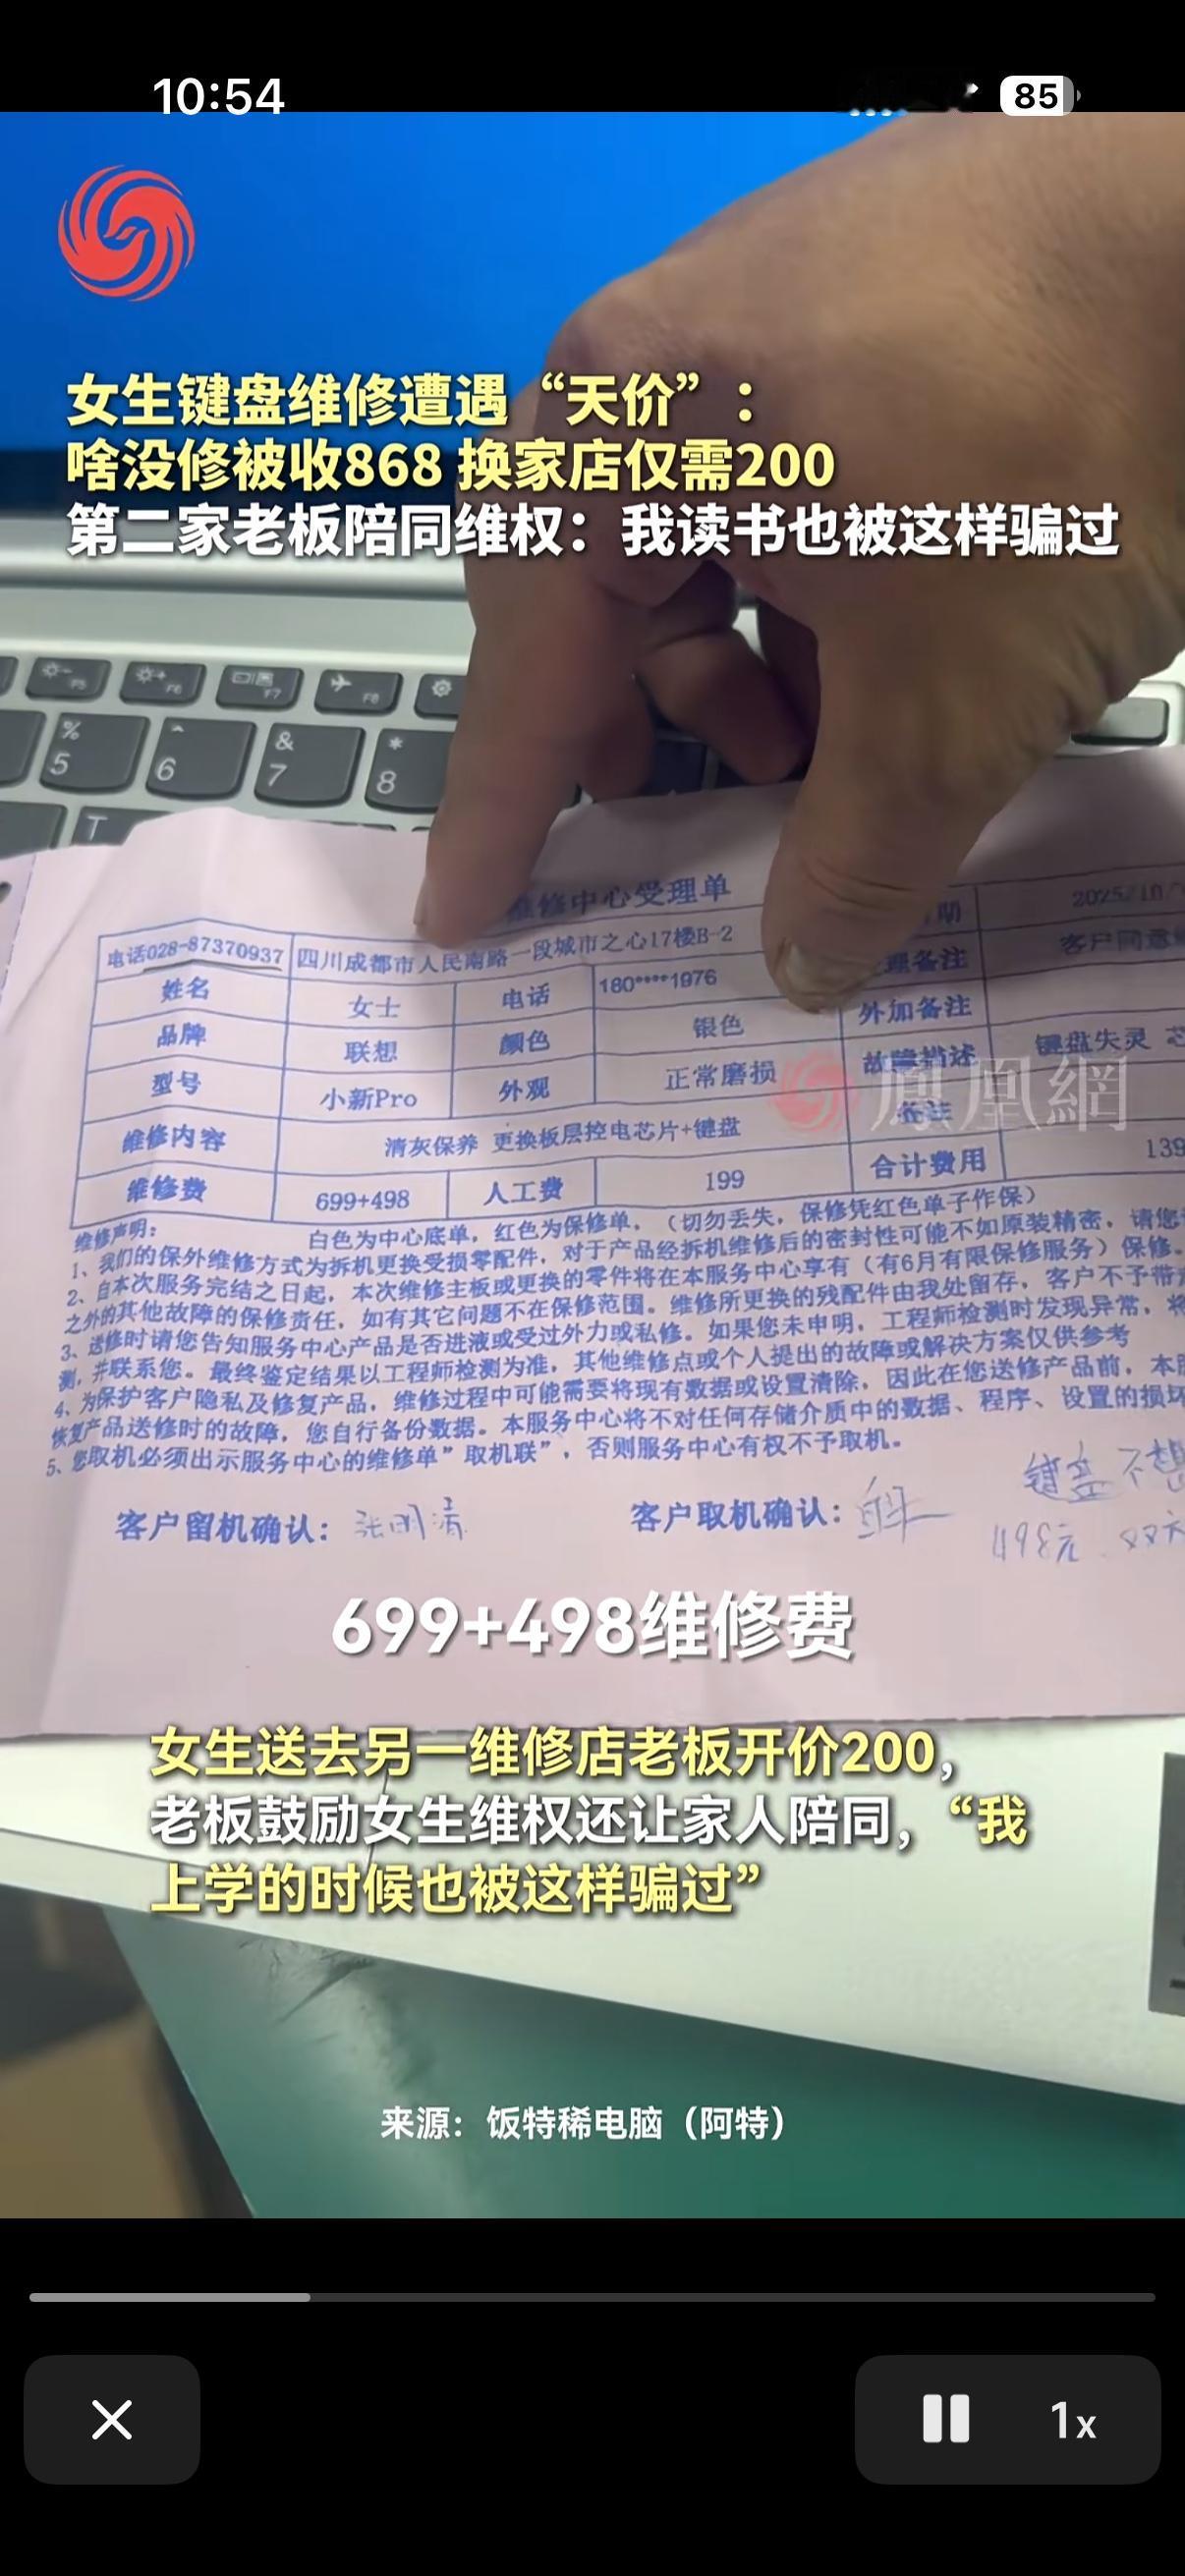 10:54
85
女生键盘维修遭遇“天价”：
啥没修被收868 换家店仅需200
第二家老板陪同维权：我读书也被这样骗过
F5
F6
F7
F8
%
5
^
6
&
7
*
8
T
维修中心受理单
2025/10/
电话028-87370937 四川成都市人民南路一段城市之心17楼B-2
客户同意
姓名 女士 电话 180****1976
外加备注
品牌 联想 颜色 银色
故障描述 键盘失灵
型号 小新Pro 外观 正常磨损
备注
鳳凰網
维修内容 清灰保养 更换板层控电芯片+键盘
合计费用 139
维修费 699+498 人工费 199
维修声明：
白色为中心底单，红色为保修单，（切勿丢失，保修凭红色单子作保）
1、我们的保外维修方式为拆机更换受损零配件，对于产品经拆机维修后的密封性可能不如原装精密，请您
2、自本次服务完结之日起，本次维修主板或更换的零件将在本服务中心享有（有6月有限保修服务）保修。
之外的其他故障的保修责任，如有其它问题不在保修范围。维修所更换的残配件由我处留存，客户不予带
3、送修时请您告知服务中心产品是否进液或受过外力或私修。如果您未申明，工程师检测时发现异常，将
测，并联系您。最终鉴定结果以工程师检测为准，其他维修点或个人提出的故障或解决方案仅供参考
4、为保护客户隐私及修复产品，维修过程中可能需要将现有数据或设置清除，因此在您送修产品前，本
恢复产品送修时的故障，您自行备份数据。本服务中心将不对任何存储介质中的数据、程序、设置的损坏
5、您取机必须出示服务中心的维修单”取机联”，否则服务中心有权不予取机。
键盘不想
客户留机确认：张明清
客户取机确认：
498元
699+498维修费
女生送去另一维修店老板开价200，
老板鼓励女生维权还让家人陪同，“我
上学的时候也被这样骗过”
来源：饭特稀电脑（阿特）
1x